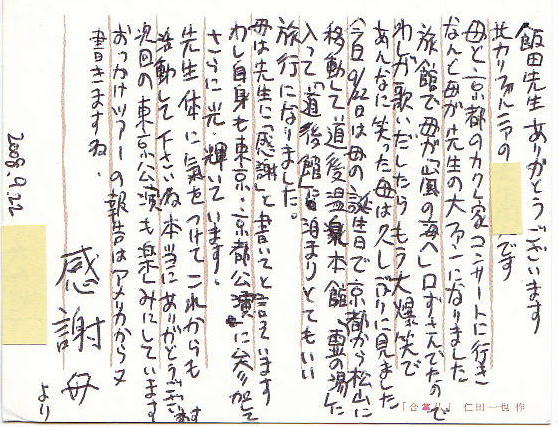 飯田先生ありがとうございます
北カリフォルニアの です
母と京都のカク家コンサートに行き
なんと母が先生の大ファンになりました
旅館で母が「風の海へ」口ずさんでたので
わしが歌いだしたらもう大爆笑で
あんなに笑った母は久しぶりに見ました
今日9/22日は母の誕生日で京都から松山に
移動して道後温泉本館 霊の湯に
入って「道後館」に泊まりとてもいい
旅行になりました。
母は先生に「感謝」と書いてと言ています
わし自身も東京・京都公演に参加して
さらに光・輝いています。
先生体に気をつけてこれからも
活動して下さいね本当にありがとうございます
次回の東京公演も楽しみにしています
おっかけツアーの報告はアメリカから又
書きますね。
感謝 母
より
2008.9.22
「合掌」 仁田一也 作